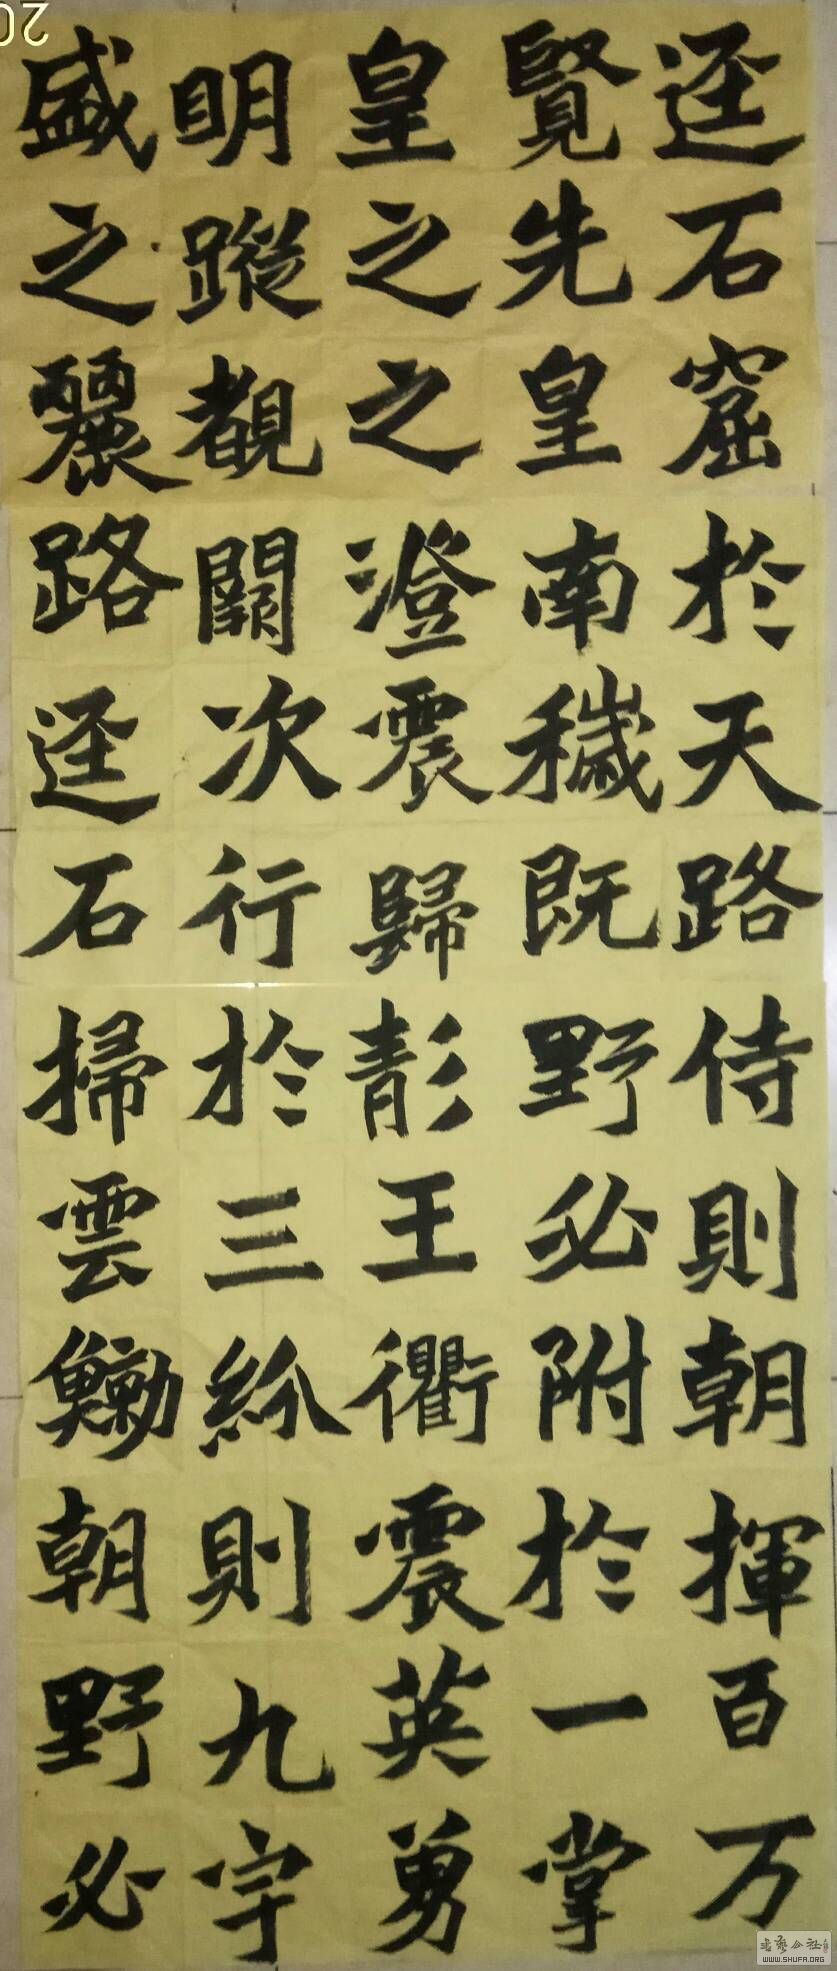 迳石窟於天路侍則朝揮百万
覧先皇南穢既野必附於一掌
皇之之澄震歸王衢震英勇
明蹤覩闕次行於三紛則九宇
盛之麗路迳石掃雲朝野必
20
WWW.SHUFA.ORG